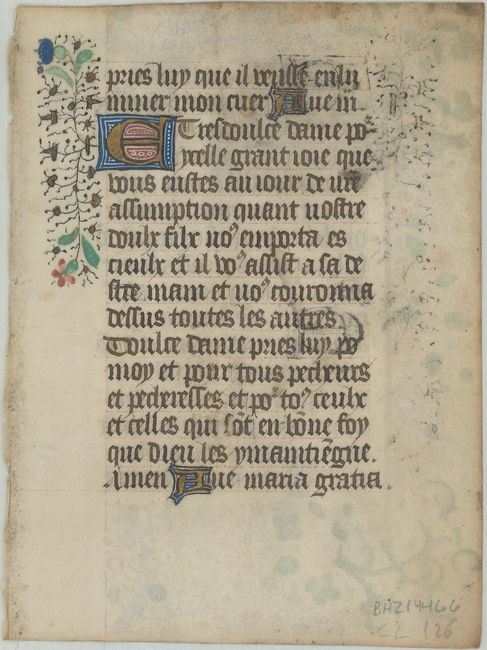 pries luy que il veulle enlu
miner mon cuer Aue m
E Tresdoulce dame po
ycelle grant ioie que
vous eustes au iour de vre
assumption quant nostre
doulx filx uoꝰ emporta es
cieulx et il voꝰ assist a sa de
stre main et uoꝰ couronna
dessus toutes les autres
Doulce dame pries luy po
moy et pour tous pecheurs
et pecheresses et po toꝰ ceulx
et celles qui sōt en bōne foy
que dieu les ymaintiēgne.
Amen Aue maria gratia.
BHZ14466
CL 126